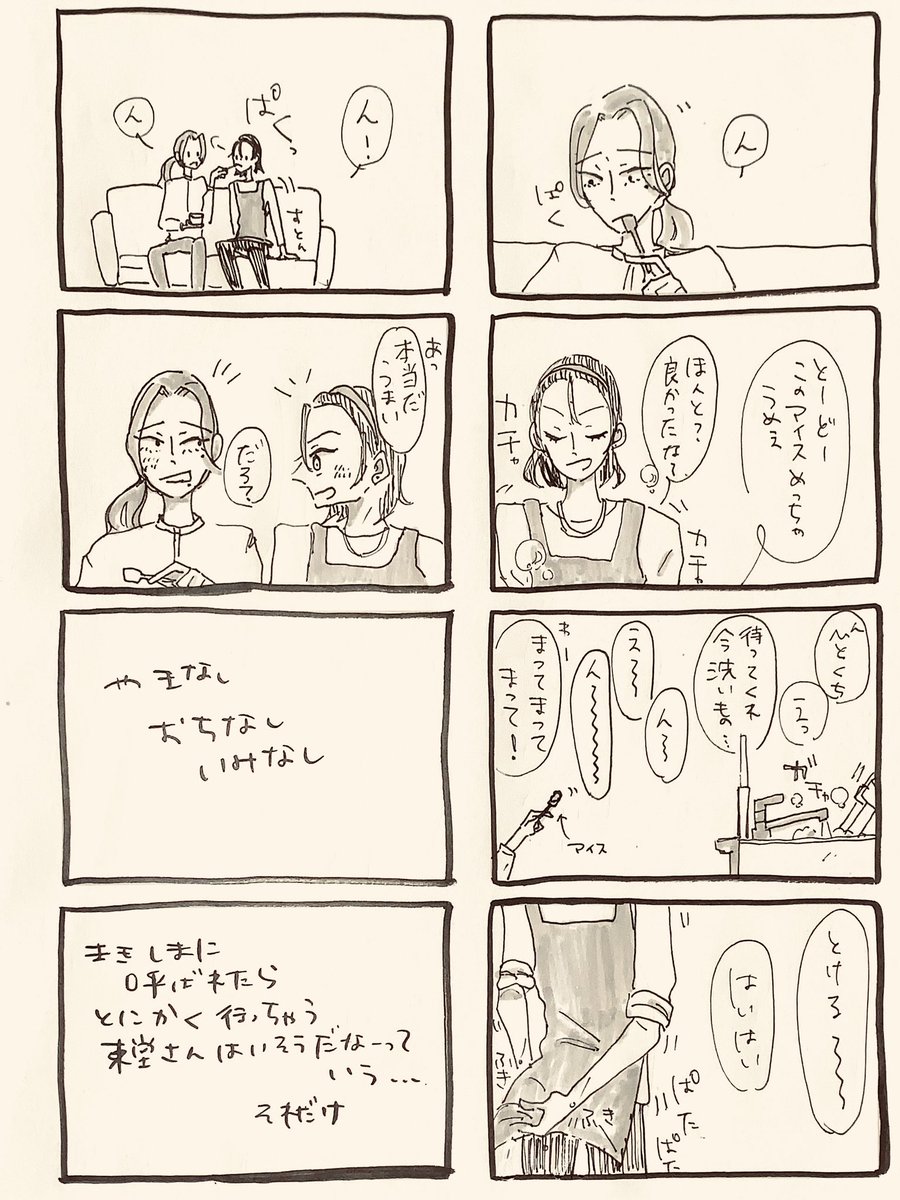 ん
ぱく
とーどー
このアイスめっちゃ
うめえ
ほんと?
良かったなァ
カチャ
カチャ
ん
ひとくち
えっ
待ってくれ
今洗いもの…
ガチャ
ん〜
え〜〜
ん〜〜〜〜〜
わー
まってまって
まって!
アイス
とけろ〜〜
はいはい
ぱたぱた
ふき
ふき
ん!
ぱくっ
ん
すとん
あっ
本当だ
うまい
だろて
やまなし
おちなし
いみなし
まきしまに
呼ばれたら
とにかく行っちゃう
東堂さんはいそうだなーって
いう…
それだけ